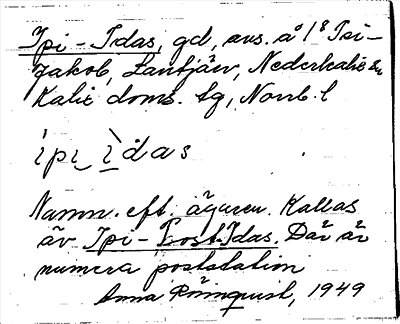 Ipi-Idas, gd, avs. å 1⁸ Ipi-
Jakob, Lantjärv, Nederkalix sn
Kalix doms. lg, Norrb. l
ipi idas
Namn. eft. ägaren. Kallas
äv Ipi-Post-Idas. Där är
numera poststation
Anna Rönnquist, 1949